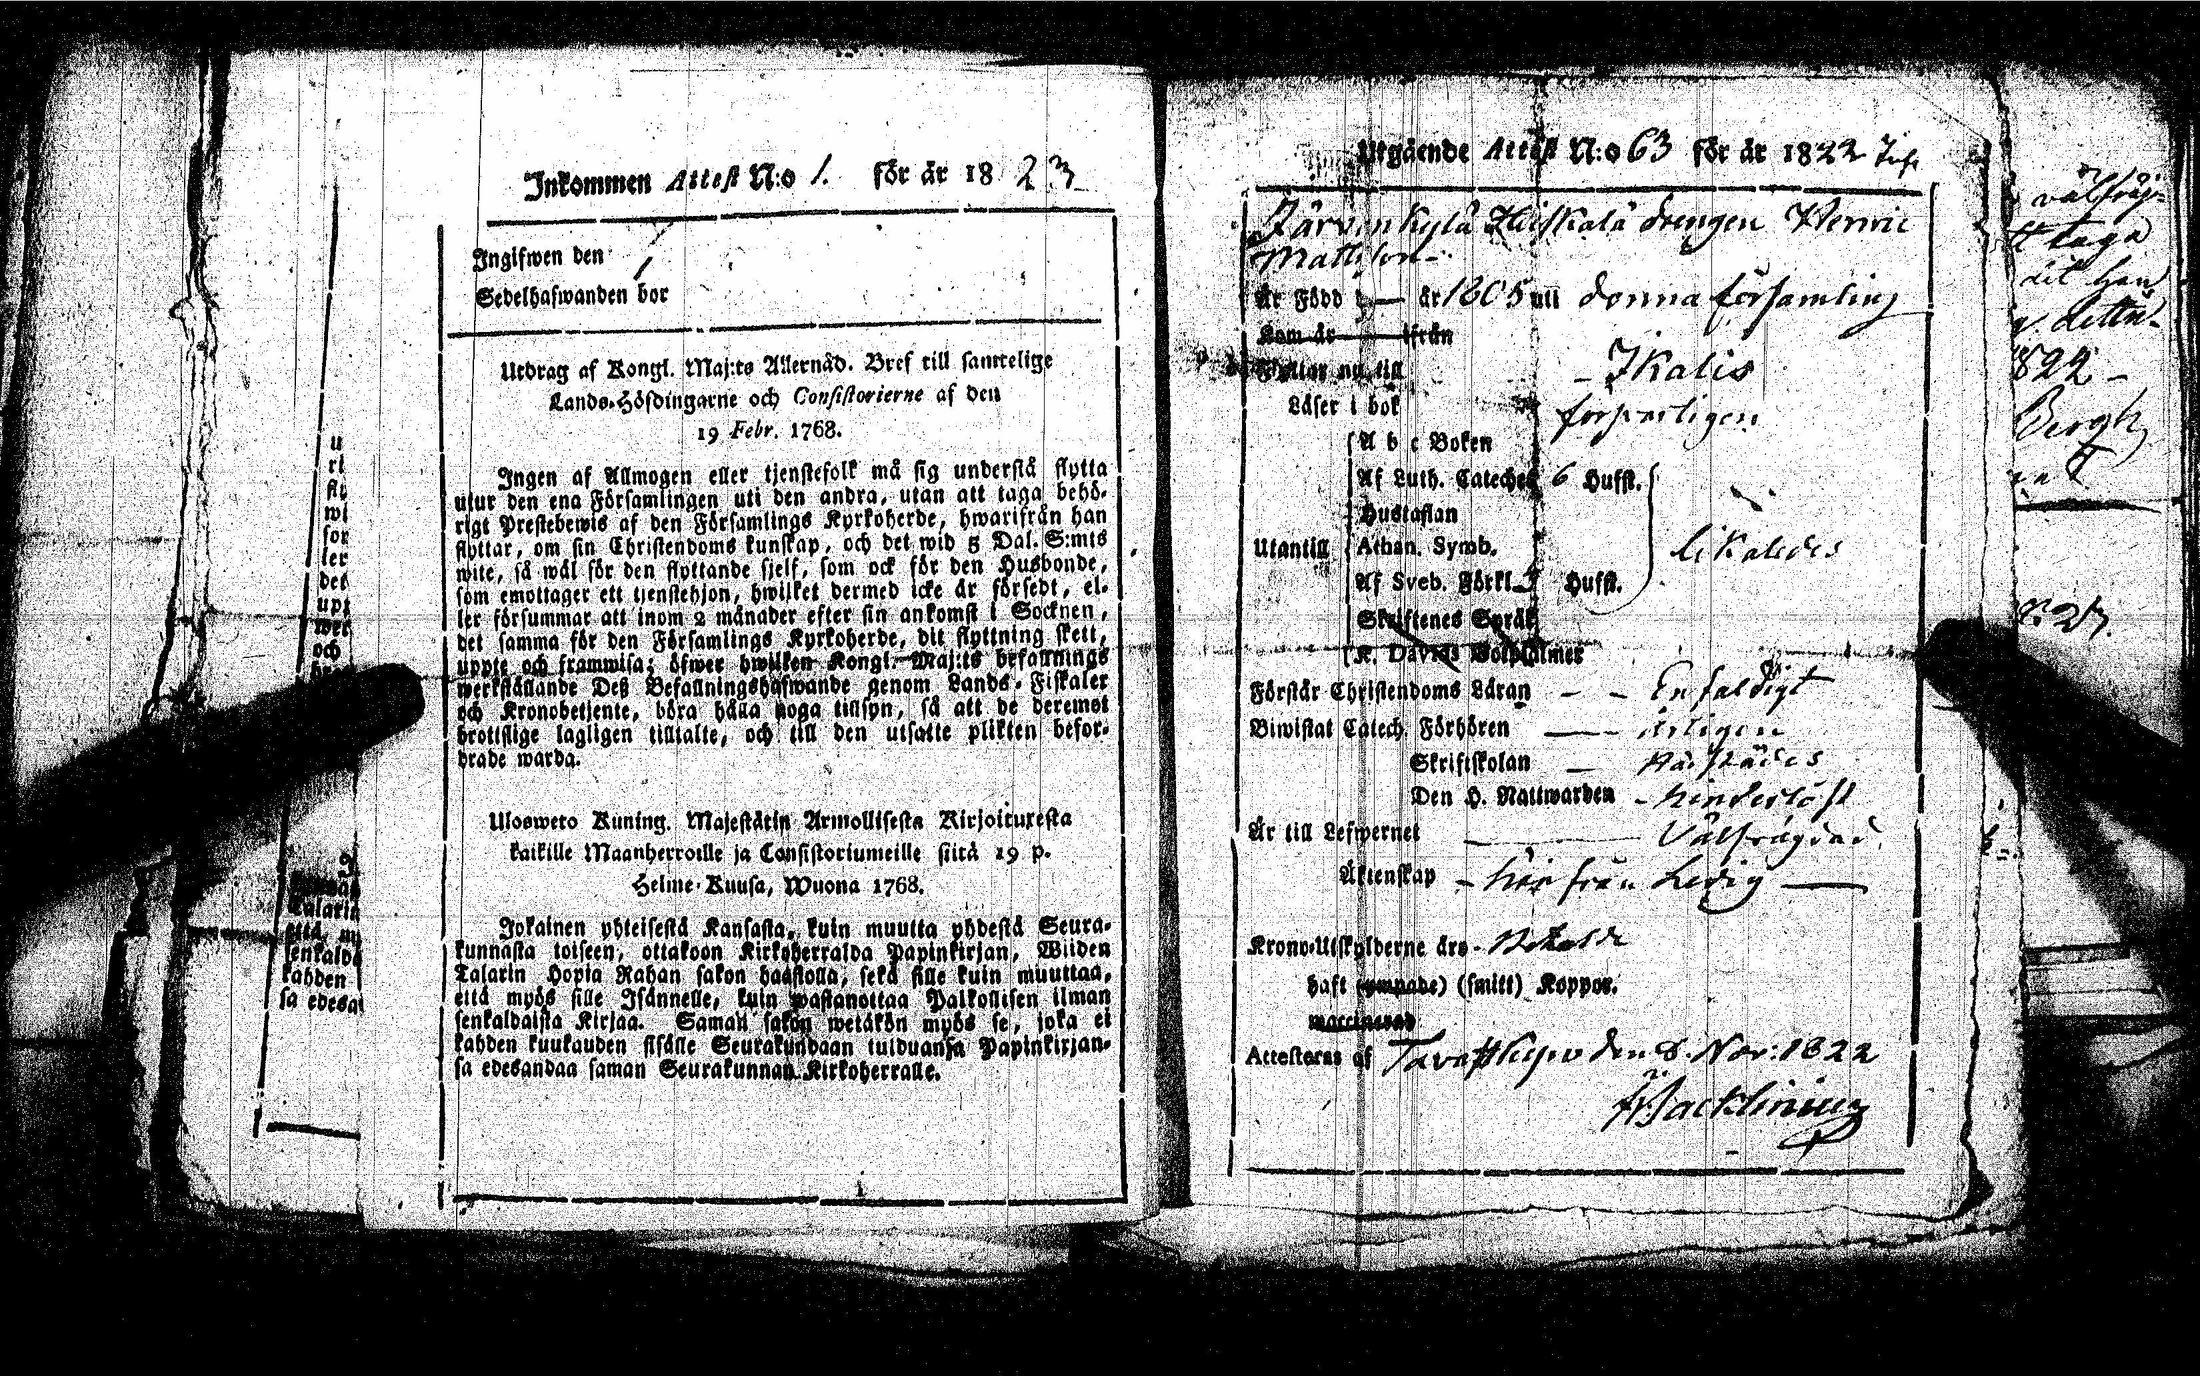 Inkommen Attest N:o 1. för år 1823
Ingifwen den
Sedelhafwanden bor
Utdrag af Kongl. Maj:ts Allernåd. Bref till samtelige
Lands-Höfdingarne och Consistorierne af den
19 Febr. 1768.
Ingen af Allmogen eller tjenstefolk må sig understå flytta
utur den ena Församlingen uti den andra, utan att taga behö-
rigt Prestebewis af den Församlings Kyrkoherde, hwarifrån han
flyttar, om sin Christendoms kunskap, och det wid 5 Dal. S:mts
wite, så wäl för den flyttande sjelf, som ock för den Husbonde,
som emottager ett tjenstehjon, hwilket dermed icke är försedt, el-
ler försummar att inom 2 månader efter sin ankomst i Socknen,
det samma för den Församlings Kyrkoherde, dit flyttning skett,
uppte och framwisa; öfwer hwilken Kongl. Maj:ts befallnings
werkställande Deß Befallningshafwande genom Lands-Fiskaler
och Kronobetjente, böra hålla noga tillsyn, så att de deremot
brottslige lagligen tilltalte, och till den utsatte plikten befor-
drade warda.
Ulosweto Kuning. Majestätin Armollisesta Kirjoituxesta
kaikille Maanherroille ja Consistoriumeille siitä 19 p.
Helme-Kuusa, Wuona 1768.
Jokainen yhteisestä Kansasta, kuin muutta yhdestä Seura-
kunnasta toiseen, ottakoon Kirkoherralda Papinkirjan, Wiiden
Talarin Hopia Rahan sakon haastolla, sekä sille kuin muuttaa,
että myös sille Isännelle, kuin wastanottaa Palkollisen ilman
senkaldaista Kirjaa. Saman sakon wetäkön myös se, joka ei
kahden kuukauden sisälle Seurakundaan tulduansa Papinkirjan-
sa edesandaa saman Seurakunnan Kirkoherralle.
Utgående Attest N:o 63 för år 1822
Järvenkylä Heiskala drengen Henric
Mattsson
Är Född år 1805 uti denna församling
Kom år ifrån
Flyttar nu till Ikalis
Läser i bok försvarligen
A b c Boken
Af Luth. Cateches 6 Hufst.
Hustaflan
Utantill Athan. Symb. likaledes
Af Sveb. Förkl. Hufst.
Skriftenes Språk
K. Davids Botpsalmer
Förstår Christendoms Läran Enfaldigt
Biwistat Catech. Förhören årligen
Skriftskolan
Den H. Nattwarden hinderlöst
Är till Lefwernet Välfrägdad
Äktenskap härfrån Ledig
Krono-Utskylderne äro Betalde
haft (ympade) (smitt) Koppor.
vaccinerad
Attesteras af den 8. Nov: 1822